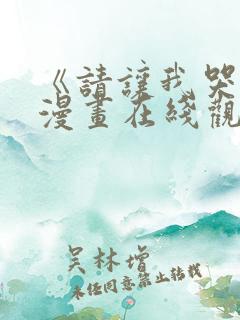 《請讓我哭
漫畫在綫觀
吴林增
未经同意禁止转载